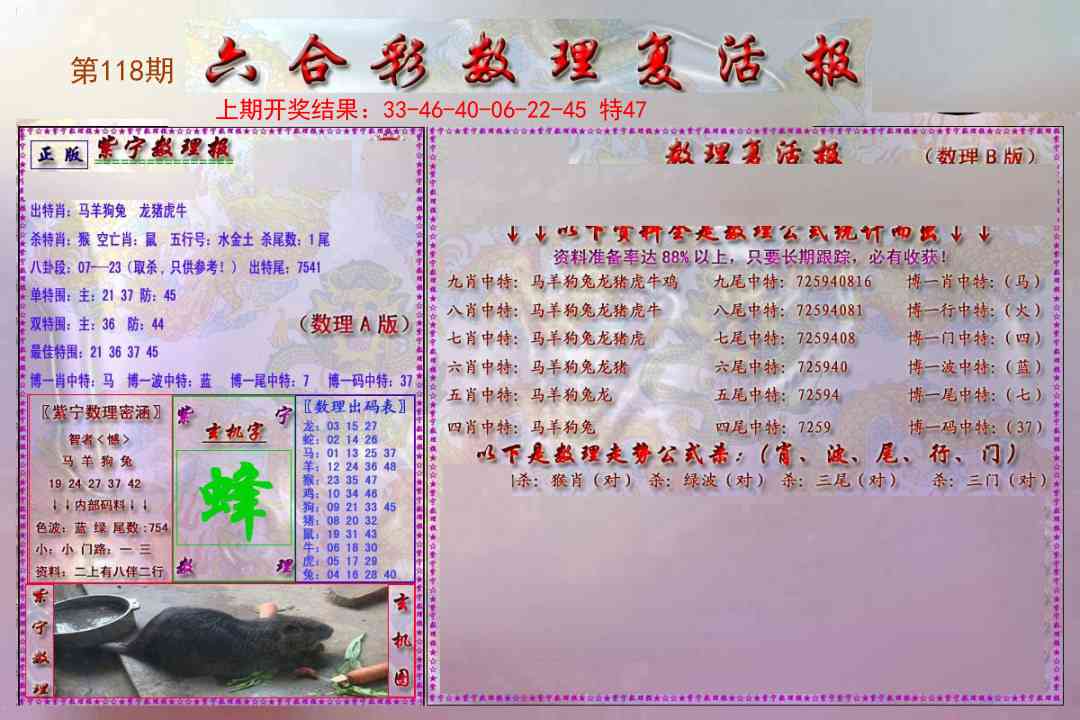 第118期
六合彩数理复活报
上期开奖结果：33-46-40-06-22-45 特47
正版 紫宁数理报
出特肖：马羊狗兔 龙猪虎牛
杀特肖：猴 空亡肖：鼠 五行号：水金土 杀尾数：1尾
八卦段：07---23（取杀，只供参考！） 出特尾：7541
单特围：主：21 37 防：45
双特围：主：36 防：44
（数理A版）
最佳特围：21 36 37 45
博一肖中特：马 博一波中特：蓝 博一尾中特：7 博一码中特：37
〖紫宁数理密涵〗
智者<憾>
马羊狗兔
19 24 27 37 42
↓↓内部码料↓↓
色波：蓝 绿 尾数:754
小：小 门路：一 三
资料：二上有八伴二行
紫宁
玄机字
蜂
数理
〖数理出码表〗
龙：03 15 27
蛇：02 14 26
马：01 13 25 37
羊：12 24 36 48
猴：23 35 47
鸡：10 34 46
狗：09 21 33 45
猪：08 20 32
鼠：19 31 43
牛：06 18 30
虎：05 17 29
兔：04 16 28 40
紫宁数理
玄机图
数理复活报
（数理B版）
↓↓以下资料全是数理公式统计而出↓↓
资料准备率达88%以上，只要长期跟踪，必有收获！
九肖中特：马羊狗兔龙猪虎牛鸡 九尾中特：725940816 博一肖中特：（马）
八肖中特：马羊狗兔龙猪虎牛 八尾中特：72594081 博一行中特：（火）
七肖中特：马羊狗兔龙猪虎 七尾中特：7259408 博一门中特：（四）
六肖中特：马羊狗兔龙猪 六尾中特：725940 博一波中特：（蓝）
五肖中特：马羊狗兔龙 五尾中特：72594 博一尾中特：（七）
四肖中特：马羊狗兔 四尾中特：7259 博一码中特：（37）
以下是数理走势公式杀：（肖、波、尾、行、门）
杀：猴肖（对） 杀：绿波（对） 杀：三尾（对） 杀：三门（对）